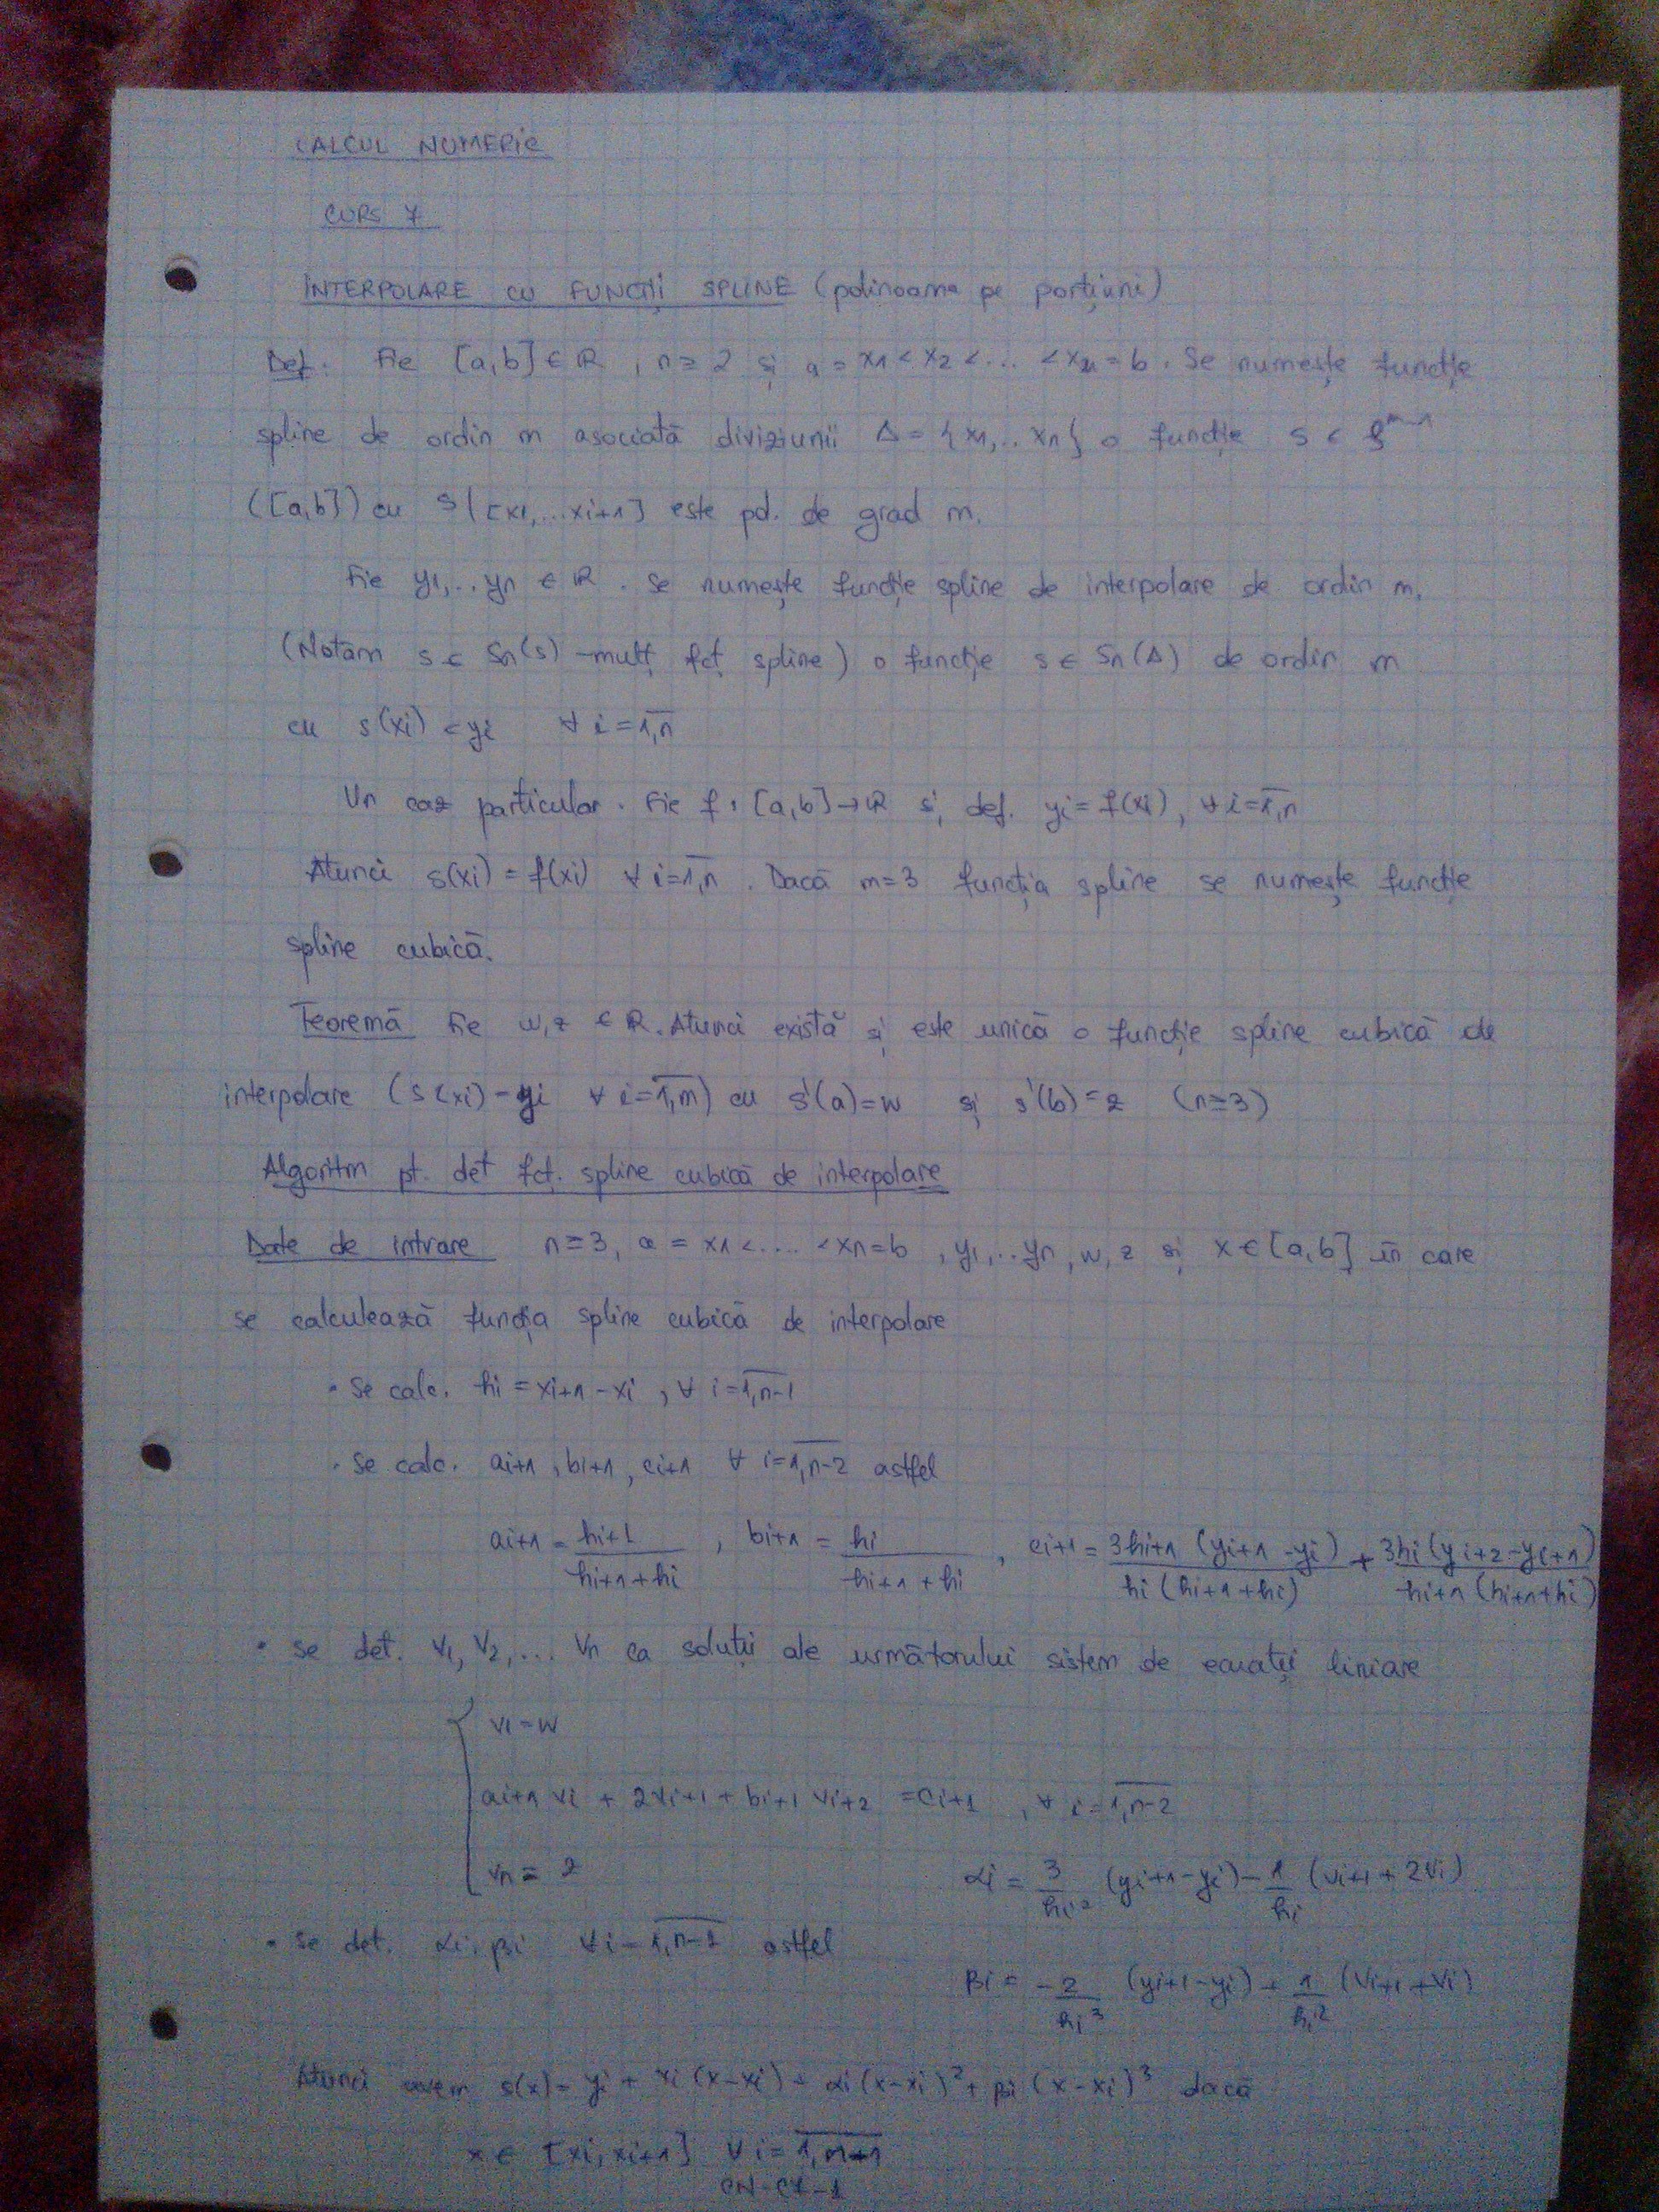 CALCUL NUMERIC
CURS 7
INTERPOLARE CU FUNCȚII SPLINE (polinoame pe porțiuni)
Def: Fie [a,b] ∈ ℝ, n ≥ 2 și a = x1 < x2 < ... < xn = b. Se numește funcție
spline de ordin m asociată diviziunii Δ = {x1,.. xn} o funcție s ∈
([a,b]) cu s|[xi,...xi+1] este pol. de grad m.
Fie y1,.. yn ∈ ℝ. Se numește funcție spline de interpolare de ordin m.
(Notăm s ∈ Sn(s) - mulț fcț spline) o funcție s ∈ Sn(Δ) de ordin m
cu s(xi) = yi ∀ i = 1,n
Un caz particular. Fie f : [a,b] → ℝ și def. yi = f(xi), ∀ i = 1,n
Atunci s(xi) = f(xi) ∀ i = 1,n. Dacă m=3 funcția spline se numește funcție
spline cubică.
Teoremă Fie w,z ∈ ℝ. Atunci există și este unică o funcție spline cubică de
interpolare (s(xi) = yi ∀ i = 1,m) cu s'(a) = w și s'(b) = z (n ≥ 3)
Algoritm pt. det fct. spline cubică de interpolare
Date de intrare n ≥ 3, a = x1 < .... < xn = b, y1,.. yn, w, z și x ∈ [a,b] în care
se calculează funcția spline cubică de interpolare
· Se calc. hi = xi+1 - xi, ∀ i = 1,n-1
· Se calc. ai+1, bi+1, ci+1 ∀ i = 1,n-2 astfel
ai+1 = hi+1 / (hi+1 + hi), bi+1 = hi / (hi+1 + hi), ci+1 = 3hi+1 (yi+1 - yi) / hi(hi+1 + hi) + 3hi(yi+2 - yi+1) / hi+1(hi+1+hi)
· Se det. v1, v2, ... vn ca soluții ale următorului sistem de ecuații liniare
v1 = w
ai+1 vi + 2vi+1 + bi+1 vi+2 = ci+1, ∀ i = 1,n-2
vn = z
αi = 3/hi² (yi+1 - yi) - 1/hi (vi+1 + 2vi)
· Se det. αi, βi ∀ i = 1,n-1 astfel
βi = -2/hi³ (yi+1 - yi) + 1/hi² (vi+1 + vi)
Atunci avem s(x) = yi + vi (x - xi) + αi (x - xi)² + βi (x - xi)³ dacă
x ∈ [xi, xi+1] ∀ i = 1,n+1
CN-C7-1